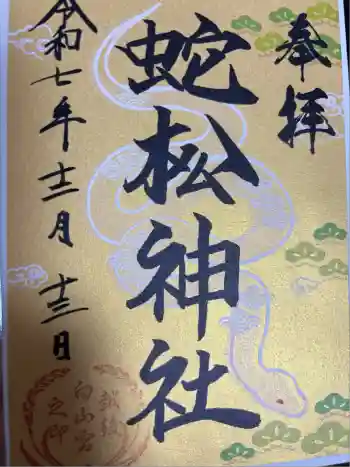 奉拝
蛇松神社
令和七年 十二月 十三日
越後
白山宮
之印